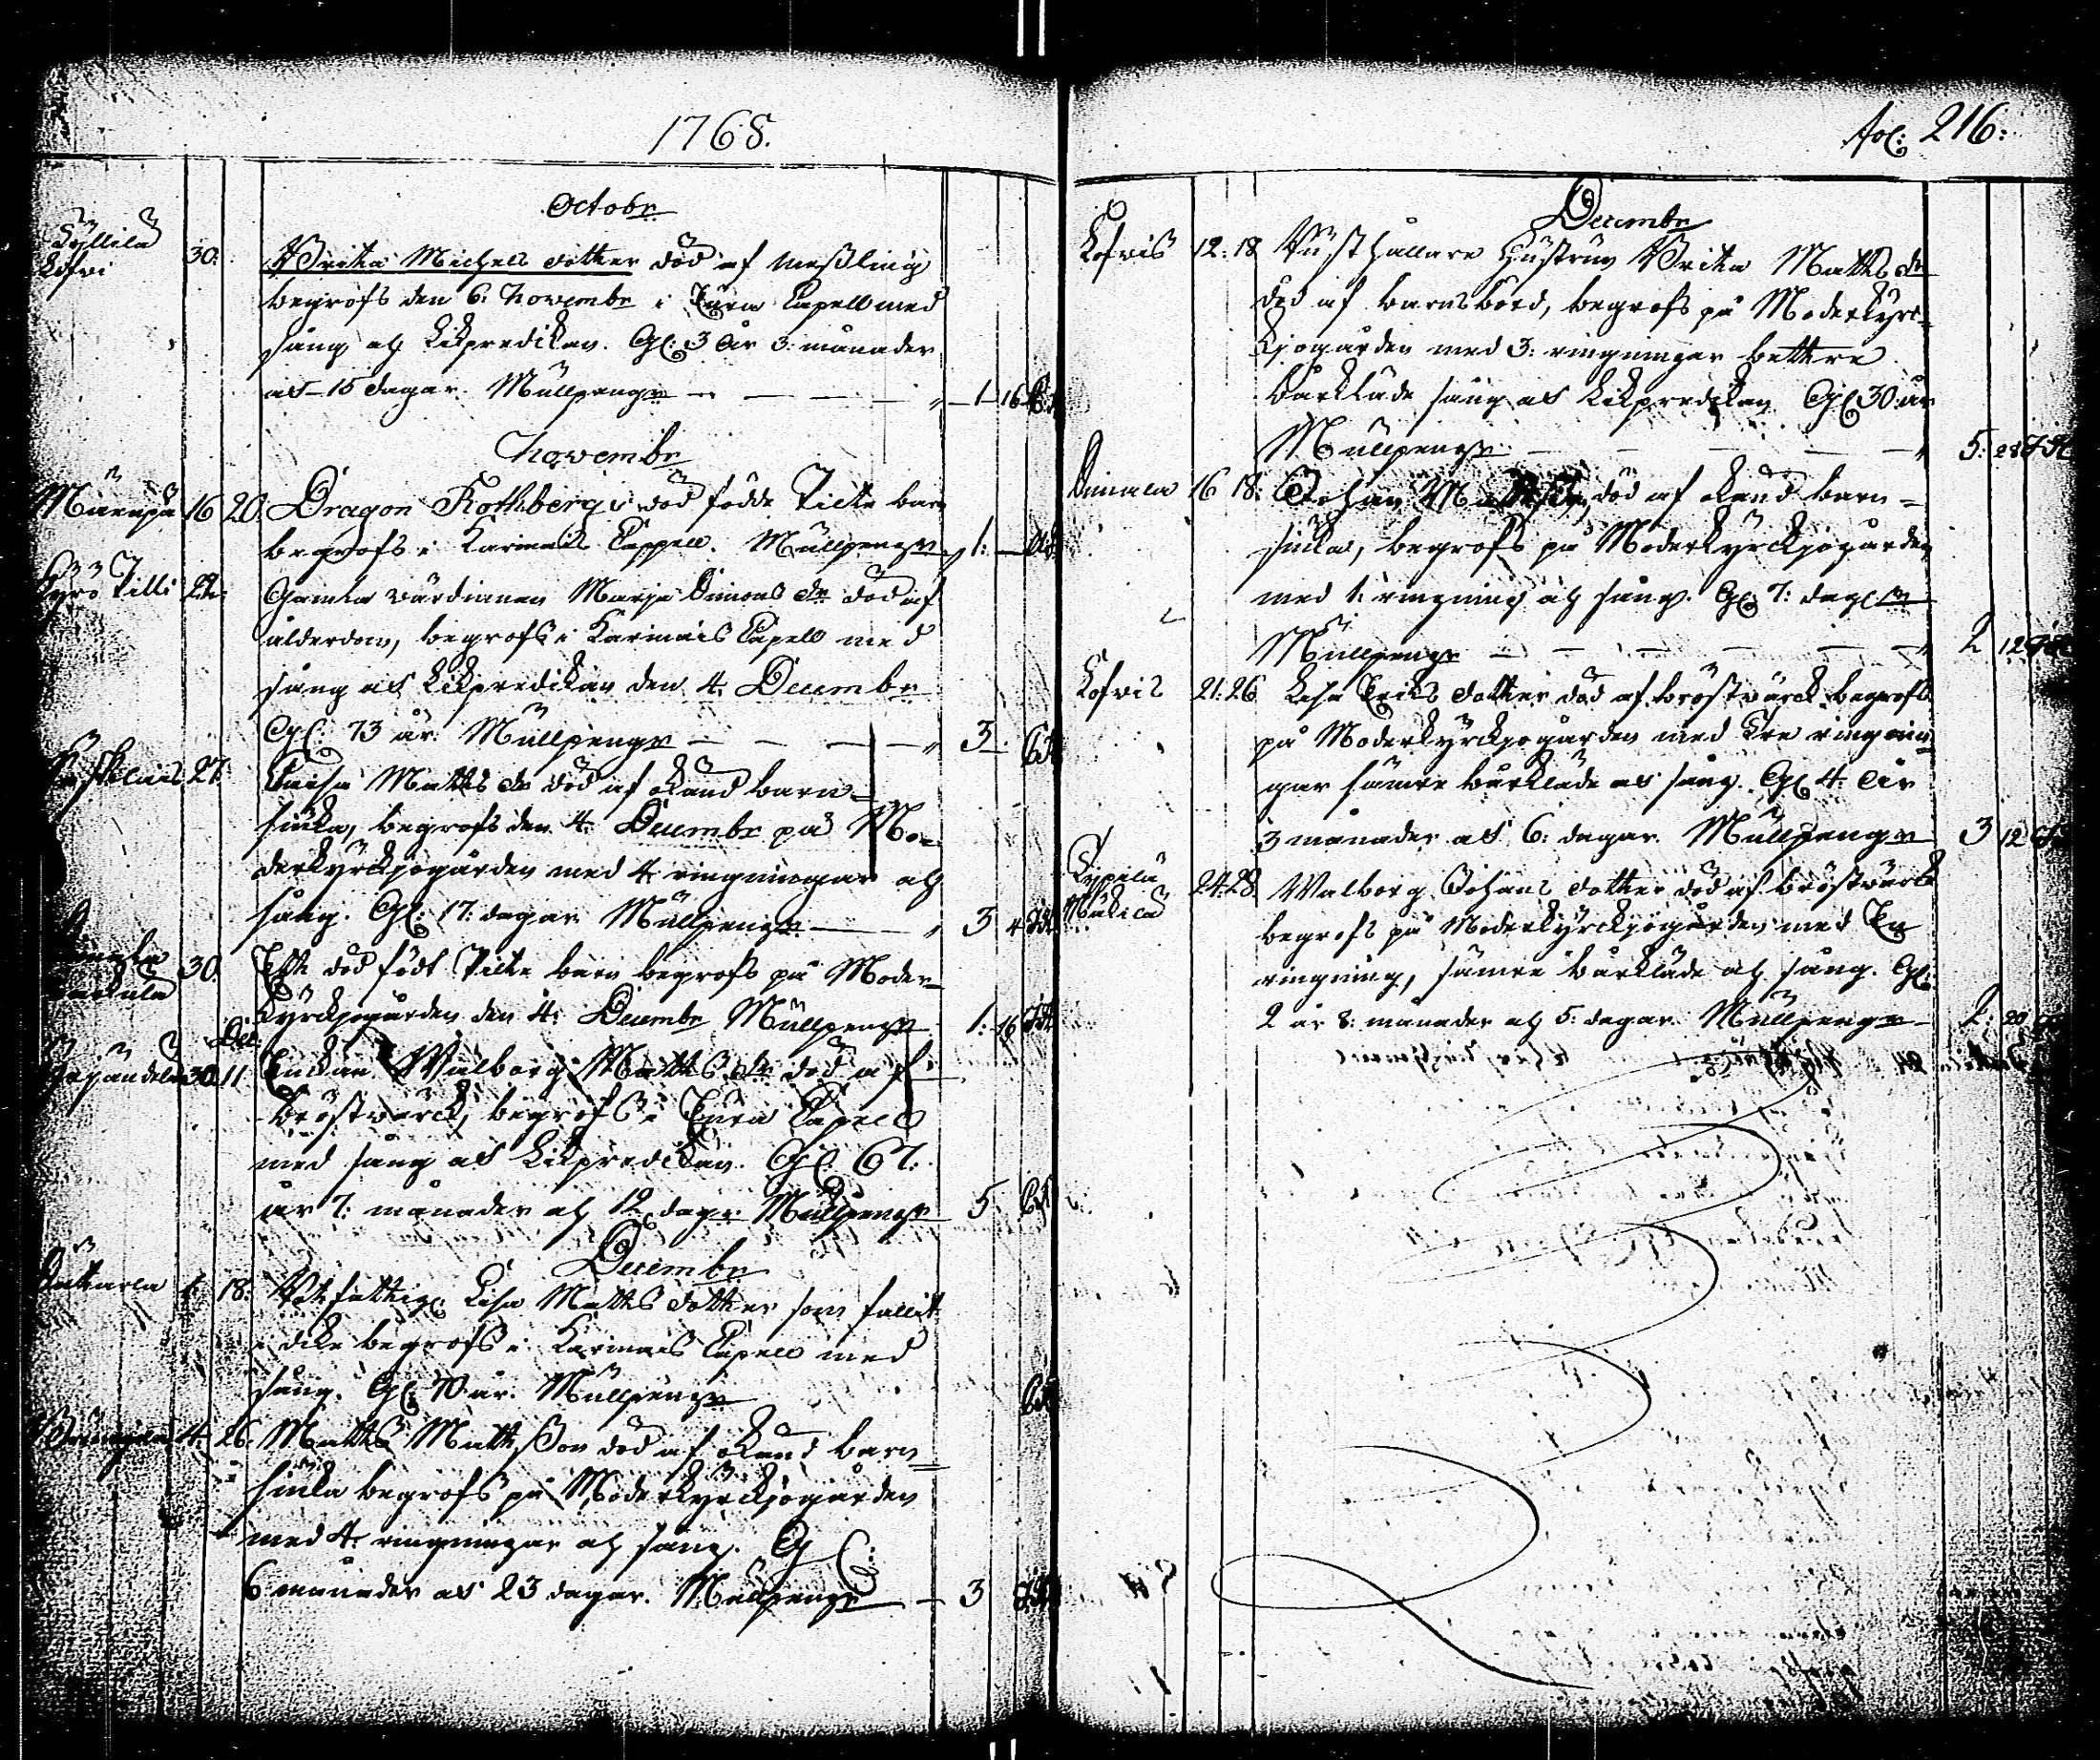 1768.
Octobr
Kyllilä Kofvi 30. Brita Michels dotter död af meßling
begrofs den 6. Novembr i Eura Capell med
sång och Likpredikan. Gl: 3 År 3: månader
och 15 dagar. Mullpengr — 1 16
Novembr
16 20. Dragon Rothbergs död födde Picke barn
begrofs i Karinais Cappell. Mullpengr 1:
Kyrö Pilli 22. Gamla värdinnan Maria Simons dr död af
ålderdom, begrofs i Karinais Capell med
sång och Likpredikan den 4. Decembr
Gl: 73 år. Mullpengr — 3
27. Caisa Matts dr död af okänd barn-
siuka, begrofs den 4. Decembr på Mo-
derkyrckjogården med 4 ringningar och
sång. Gl: 17: dagar Mullpengr — 3 4
30. Ett död födt Picke barn begrofs på Moder-
kyrckjogården den 4: Decembr Mullpengr 1: 16
Dec:
30 11 Enckan Walborg Matts dr död af
bröstvärck, begrofs i Eura Capell
med sång och Likpredikan. Gl: 67:
år 7: månader och 12 dagr. Mullpengr 5
Decembr
4 18. Rotefattig Lisa Matts dotter som fallit
i dike begrofs i Karinais Capell med
sång. Gl: 70 år. Mullpengr
4. 26. Matts Mattßon död af okänd barn
siuka begrofs på Moderkyrckjogården
med 4. ringningar och sång. Gl:
6 månader och 23 dagar. Mullpengr — 3
fol: 216:
Decembr
Kofvis 12: 18 Rusthållare Hustrun Brita Matts dr
död af barnsbörd, begrofs på Moderkyrc-
kjogården med 3: ringningar bettre
bårkläde sång och Likpredikan Gl 30 år
Mullpengr — 5: 28
16 18: Johan Mattsson död af okänd barn-
siuka, begrofs på Moderkyrckjogården
med 1: ringning och sång. Gl: 7: dagar
Mullpengr — 2 12
Kofvis 21: 26 Lisa Eriks dotter död af bröstvärck begrofs
på Moderkyrckjogården med Tre ringnin-
gar sämre bårkläde och sång. Gl 4: År
3 månader och 6: dagar. Mullpengr 3 12
24: 28 Walborg Johans dotter död af bröstvärck
begrofs på Moderkyrckjogården med En
ringning, sämre bårkläde och sång. Gl:
2 år 8: månader och 5: dagar. Mullpengr 2: 20